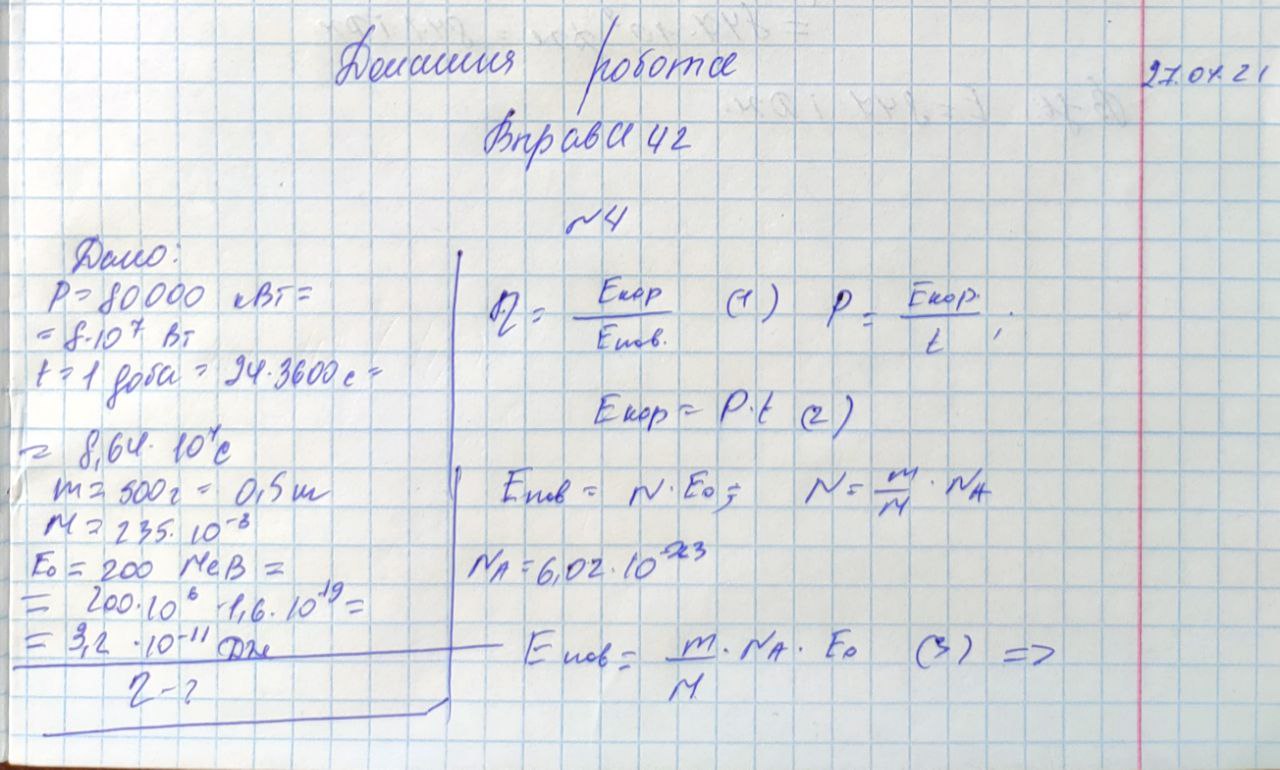 Домашня робота
27.04.21
Вправа 42
№4
Дано:
P = 80000 кВт =
= 8·10⁷ Вт
t = 1 доба = 24·3600 с =
= 8,64·10⁴ с
m = 500 г = 0,5 кг
M = 235·10⁻³
E₀ = 200 МеВ =
= 200·10⁶·1,6·10⁻¹⁹ =
= 3,2·10⁻¹¹ Дж
η - ?
η = Eкор / Eпов. (1) P = Eкор. / t ;
Eкор = P·t (2)
Eпов = N·E₀; N = m/M · NA
NA = 6,02·10²³
Eпов = m/M · NA · E₀ (3) =>